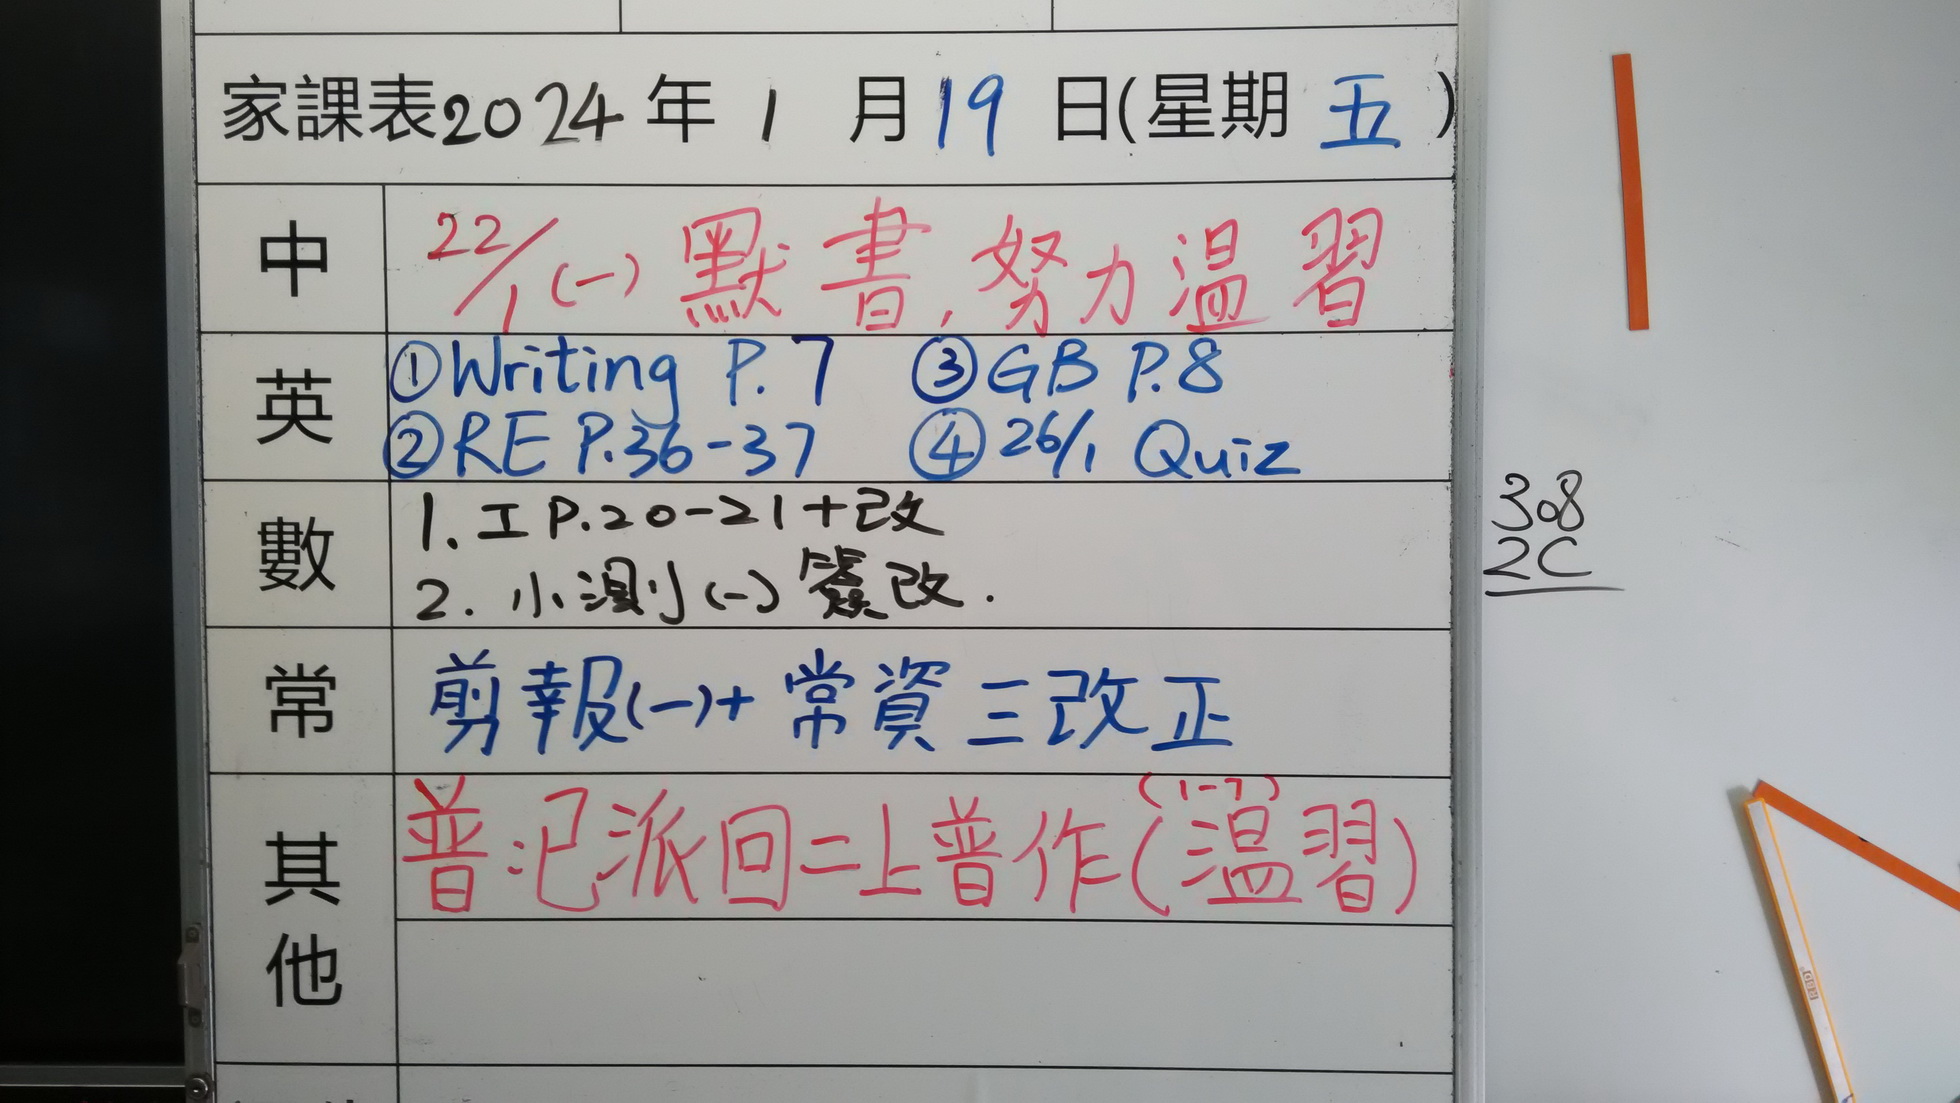 家課表2024年1月19日(星期五)
中
22/1(一)默書,努力溫習
英
①Writing P.7 ③GB P.8
②RE P.36-37 ④26/1 Quiz
數
1. 工 P.20-21+改
2. 小測(一)簽改.
308
2C
常
剪報(一)+常資三改正
其他
(1-7)
普:已派回二上普作(溫習)